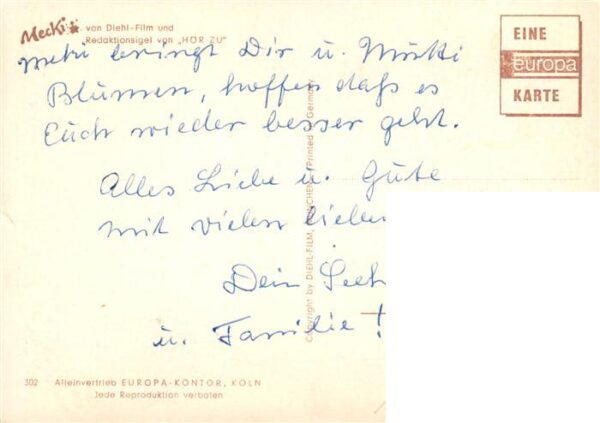 Mecki von Diehl-Film und
Redaktionsigel von „HÖR ZU"
EINE
europa
KARTE
Meki bringt Dir u. Mutti
Blumen, hoffen daß es
Euch wieder besser geht.
Alles Liebe u. Gute
mit vielen lieben
Dein
u. Familie!
Copyright by DIEHL-FILM, MÜNCHEN Printed in Germany
302 Alleinvertrieb EUROPA-KONTOR, KÖLN
Jede Reproduktion verboten